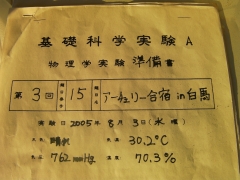 基礎科学実験A
物理学実験 準備書
第 3回 題目番号 15 題目名 アーチェリー合宿 in 白馬
実験日 2005年 8月 3日(水曜)
天気 晴れ 気温 30.2℃
気圧 762mmHg 湿度 70.3%